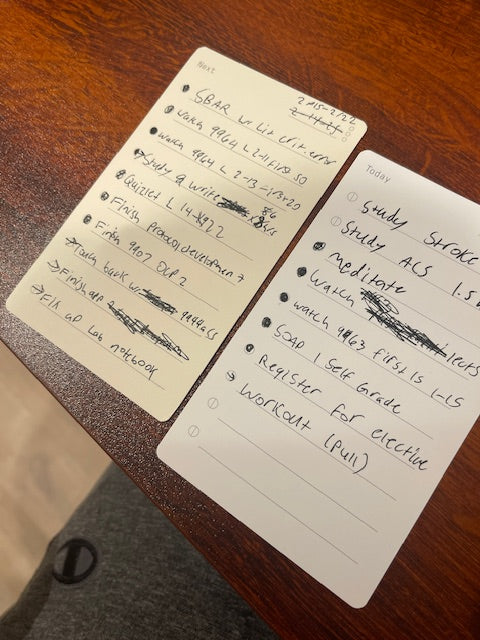 Next
2-15-2/22
SBAR w Lit crit. error
watch 9964 L 2-11 first 50
watch 9964 L 2-13 -1:13:20
Study @ write
Quizlet L 14
Finish Protocol development
Finish 9907 DLP 2
Touch book w.
Finish app
Fin up Lab notebook
Today
Study Stroke
Study ACS 1.5
meditate
Watch lects
watch 9963 first 15 1-LS
SOAP 1 Self Grade
Register for elective
Workout (Pull)